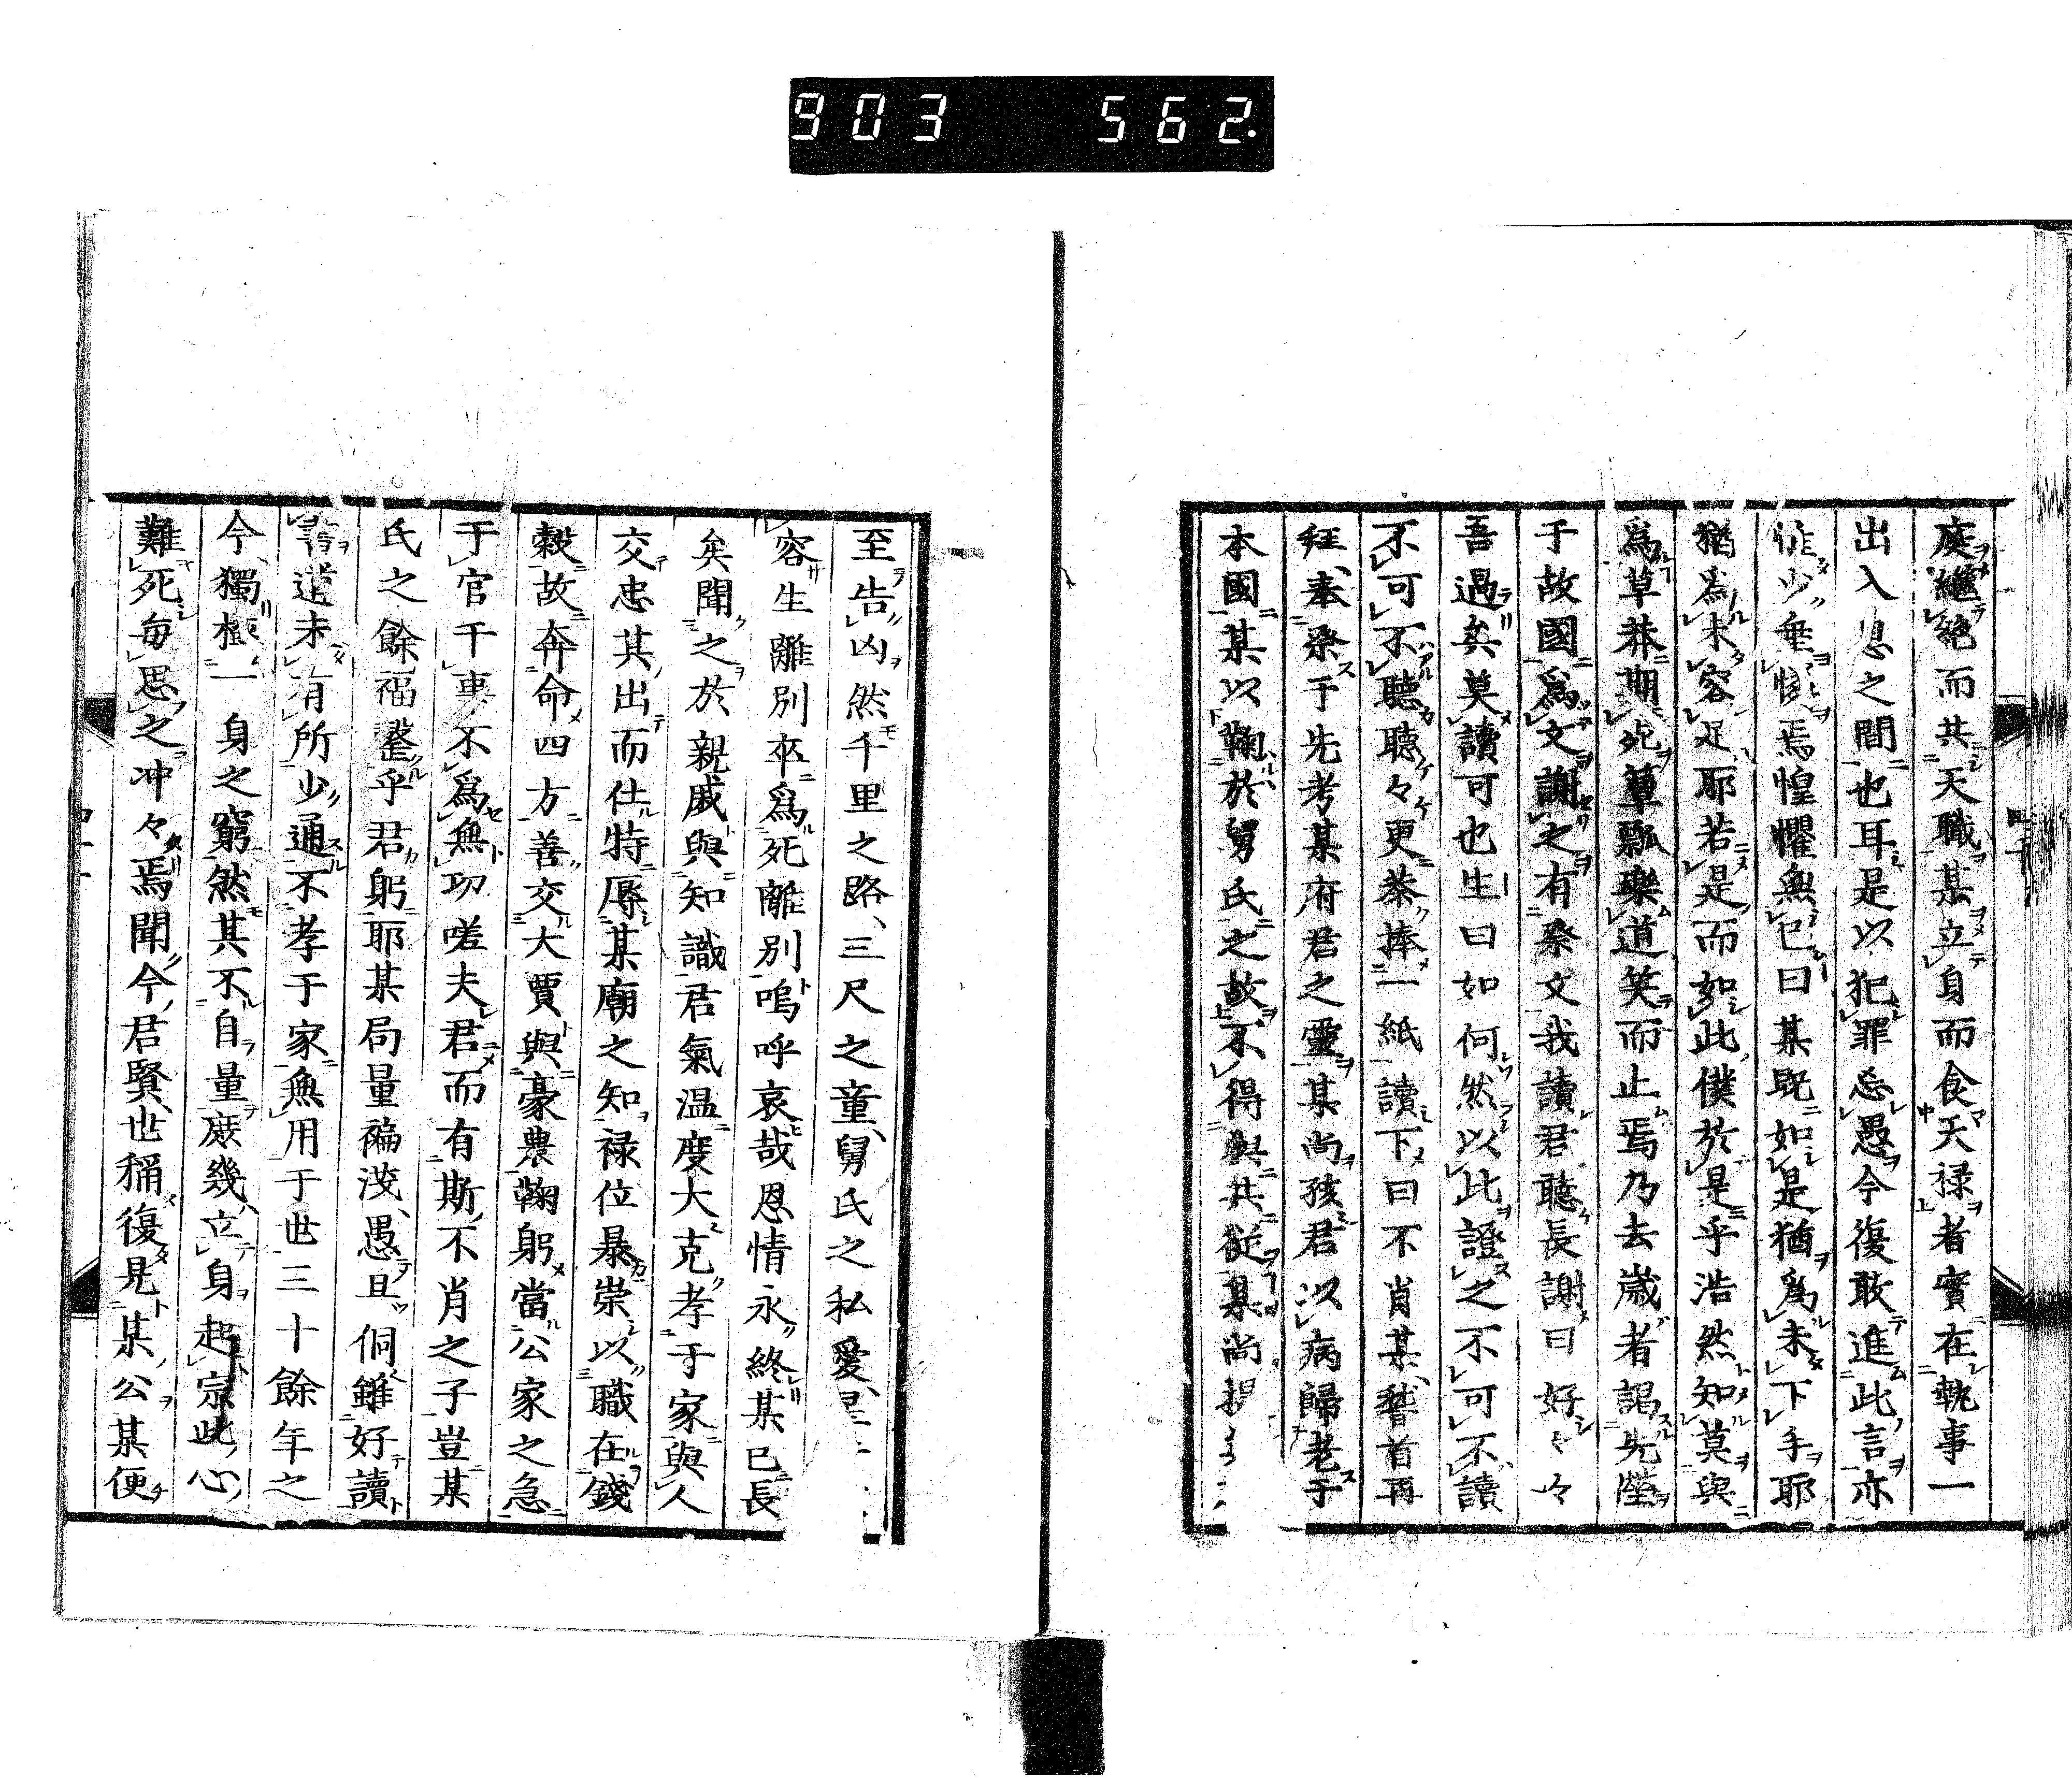 903 562
庭繼絕而共天職某立身而食天禄者實在執事一
出入息之間也耳是以犯罪忘愚今復敢進此言亦
少垂焉惶懼無已曰某既如是猶爲未下手耶
猶爲未容足耶若是而如此僕於是乎浩然知莫與
爲草莽期死簞瓢樂道笑而止焉乃去歲者謁先塋
于故國爲文謝之有祭文我讀君聽長謝曰好々々
吾過矣莫讀可也生曰如何然以此證之不可不讀
不可不聽聽々更恭捧一紙讀下曰不肖某稽首再
拜奉祭于先考某府君之靈某尚孩君以病歸老于
本國某以鞠於舅氏之故不得與其從某尚
至告凶然千里之路三尺之童舅氏之私愛
容生離別卒爲死離別嗚呼哀哉恩情永終某已長
矣聞之於親戚與知識君氣温度大克孝于家與人
交忠其出而仕特辱某廟之知禄位暴崇以職在錢
穀故奔命四方善交大賈與豪農鞠躬當公家之急
于官干事不爲無功嗟夫君而有斯不肖之子豈某
氏之餘福盡乎君躬耶某局量褊淺愚且侗雖好讀
書道未有所少通不孝于家無用于世三十餘年之
今獨極一身之窮然其不自量庶幾立身起宗此心
難死每思之冲々焉聞今君賢世稱復見某公某便